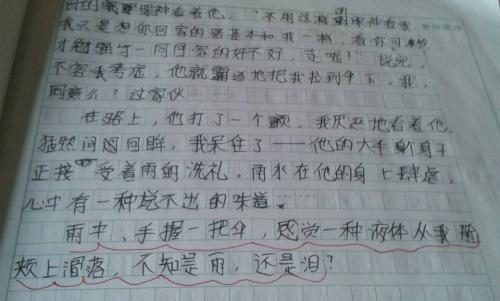 的眼神看着他，"不用这样的眼神看我
我只是想你回家的路基本和我一样，看你可怜
才勉强与一同回家的好不好，走啦！"说完，
不容我考虑，他就霸道地把我拉到伞下，我，
同意么？这家伙……
在路上，他打了一个颤，我厌恶地看着他，
猛然间回眸，我呆住了——他的大半身子
正接受着雨的洗礼，雨水在他的身上肆虐，
心中有一种说不出的味道……
雨中，手握一把伞，感觉一种液体从我脸
颊上滑落，不知是雨，还是泪？